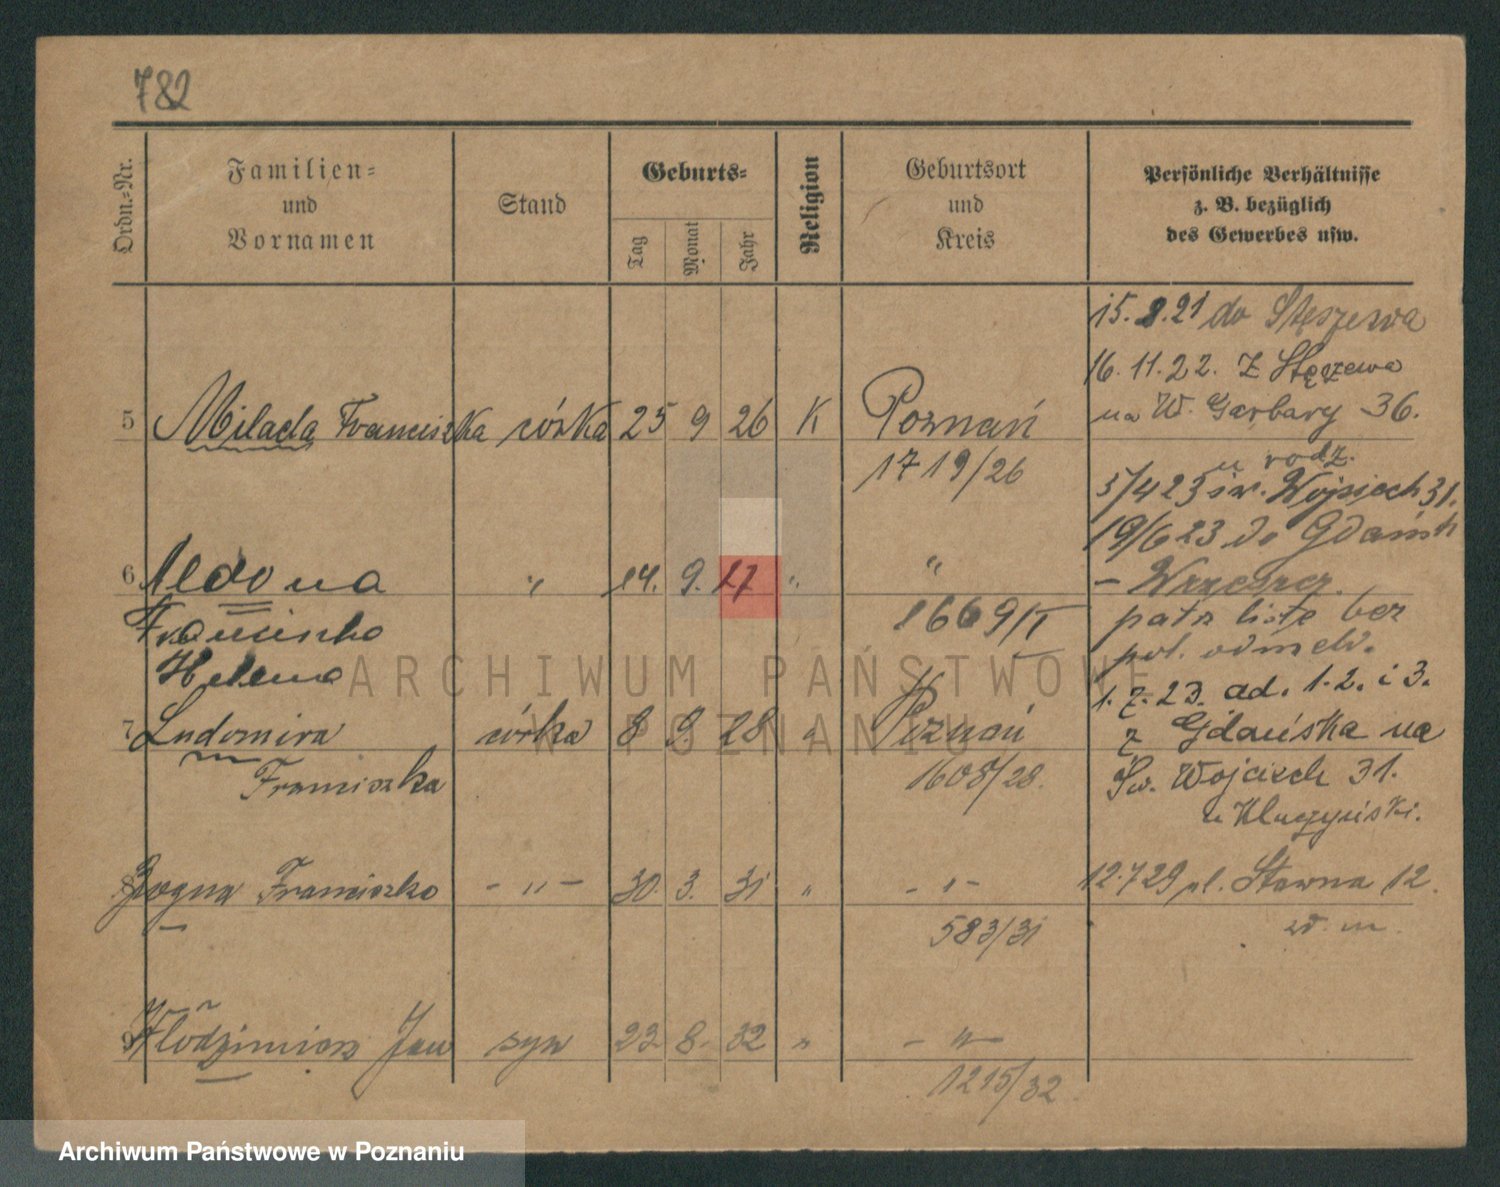 782
Ordn.-Nr.
Familien-
und
Vornamen
Stand
Geburts-
Tag
Monat
Jahr
Religion
Geburtsort
und
Kreis
Persönliche Verhältnisse
z. B. bezüglich
des Gewerbes usw.
15.8.21 do Stęszewa
16.11.22. z Stęszewa
na W. Garbary 36.
5 Milada Franciszka córka 25 9 26 K Poznań
1719/26
u rodz.
5/4 23 św. Wojciech 31.
19/6 23 do Gdańsk
- Wrzeszcz.
6 Aldona " 14. 9. 27 " "
Franciszka
1669/I
Helena
patz liste bez
pol. odmeld.
1.7.23. ad. 1.2. i 3.
7 Ludomira córka 8 9 28 " Poznań
z Gdańska na
Franciszka
1605/28.
Św. Wojciech 31.
u Kluczyński.
8 Bogna Franciszka - " - 30. 3. 31 " - " -
12.7.29 pl. Sławna 12.
583/31
w. m.
9 Włodzimierz Jan syn 23. 8. 32 " - " -
1215/32
ARCHIWUM PAŃSTWOWE
W POZNANIU
Archiwum Państwowe w Poznaniu